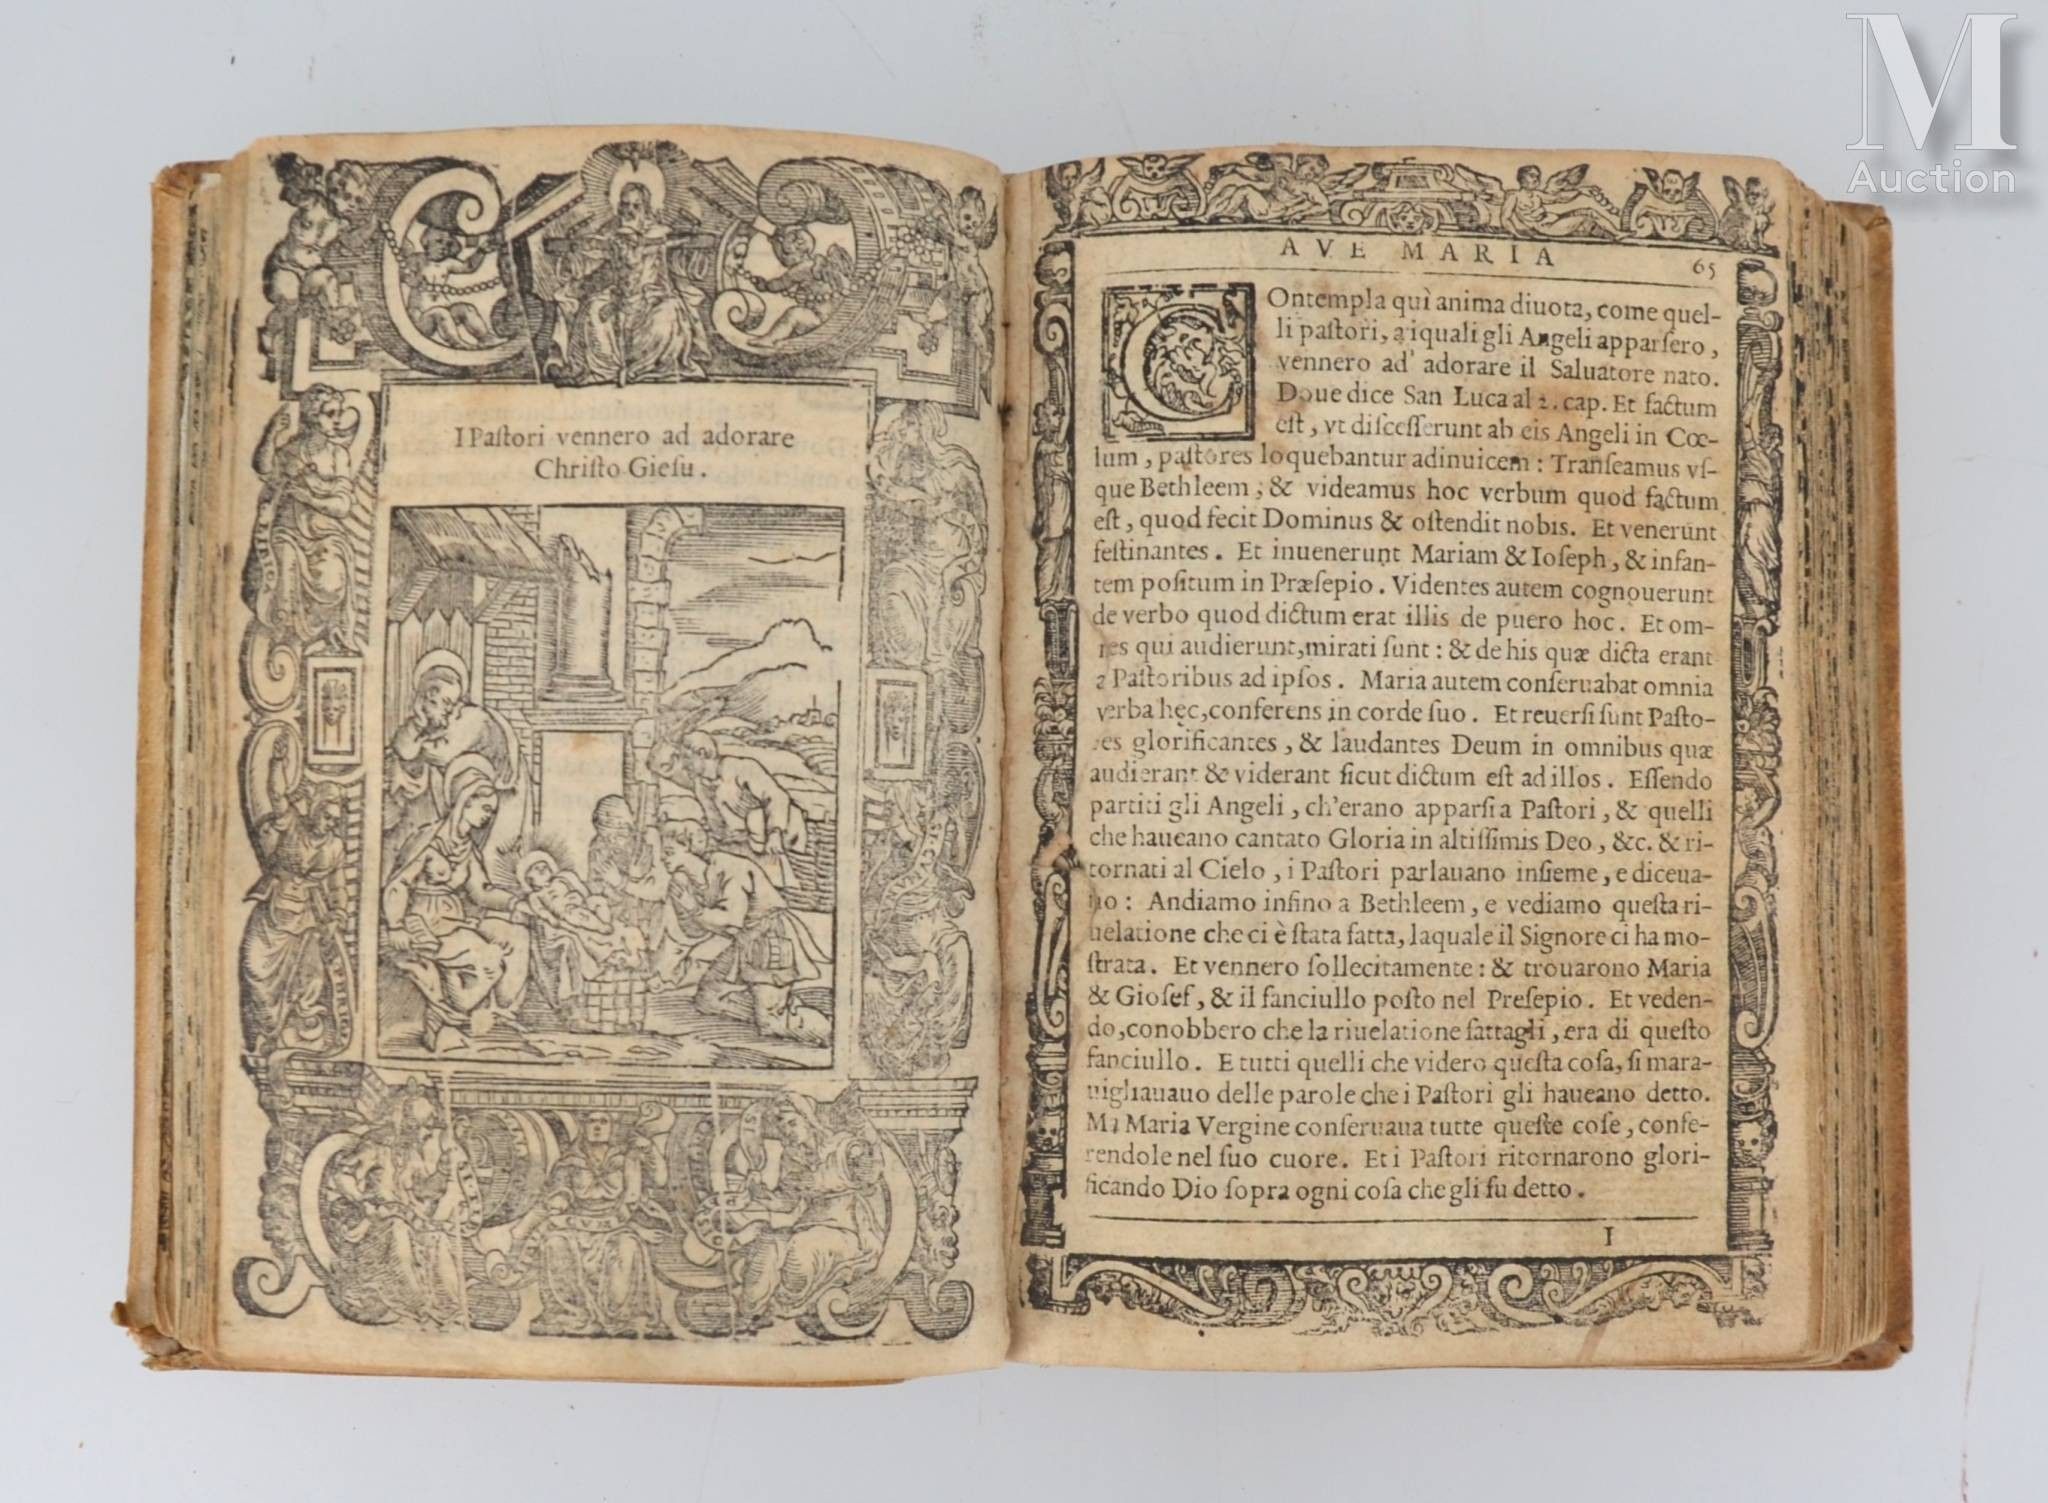 I Paſtori vennero ad adorare
Chriſto Gieſu.
AVE MARIA
65
COntempla quì anima diuota, come quel-
li paſtori, a iquali gli Angeli apparſero,
vennero ad' adorare il Saluatore nato.
Doue dice San Luca al 2. cap. Et factum
eſt, vt diſceſſerunt ab eis Angeli in Cœ-
lum, paſtores loquebantur adinuicem: Tranſeamus vſ-
que Bethleem, & videamus hoc verbum quod factum
eſt, quod fecit Dominus & oſtendit nobis. Et venerunt
feſtinantes. Et inuenerunt Mariam & Ioſeph, & infan-
tem poſitum in Præſepio. Videntes autem cognouerunt
de verbo quod dictum erat illis de puero hoc. Et om-
nes qui audierunt, mirati ſunt: & de his quæ dicta erant
a Paſtoribus ad ipſos. Maria autem conſeruabat omnia
verba hęc, conferens in corde ſuo. Et reuerſi ſunt Paſto-
res glorificantes, & laudantes Deum in omnibus quæ
audierant & viderant ſicut dictum eſt ad illos. Eſſendo
partiti gli Angeli, ch'erano apparſi a Paſtori, & quelli
che haueano cantato Gloria in altiſſimis Deo, &c. & ri-
tornati al Cielo, i Paſtori parlauano inſieme, e diceua-
no: Andiamo infino a Bethleem, e vediamo queſta ri-
uelatione che ci è ſtata fatta, laquale il Signore ci ha mo-
ſtrata. Et vennero ſollecitamente: & trouarono Maria
& Gioſef, & il fanciullo poſto nel Preſepio. Et veden-
do, conobbero che la riuelatione fattagli, era di queſto
fanciullo. E tutti quelli che videro queſta coſa, ſi mara-
uigliauauo delle parole che i Paſtori gli haueano detto.
Ma Maria Vergine conſeruaua tutte queſte coſe, confe-
rendole nel ſuo cuore. Et i Paſtori ritornarono glori-
ficando Dio ſopra ogni coſa che gli fu detto.
I
M
Auction